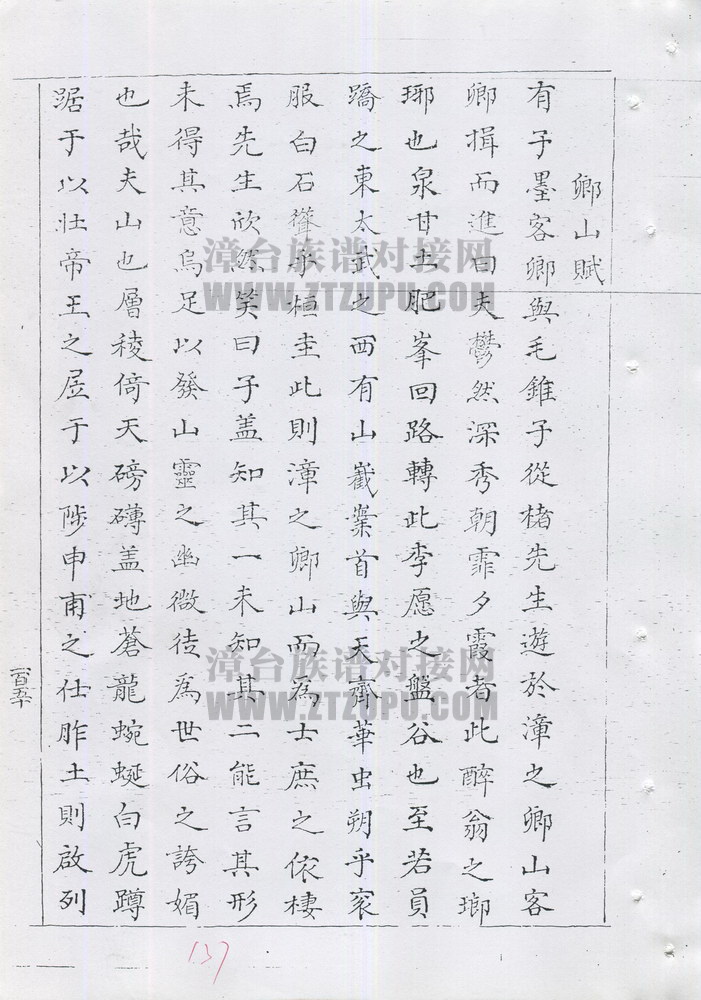 卿山賦
有子墨客卿與毛錐子從楮先生遊於漳之卿山客
卿揖而進曰夫鬱然深秀朝霏夕霞者此醉翁之瑯
琊也泉甘土肥峯回路轉此李愿之盤谷也至若員
嶠之東太武之西有山嶻嶪首與天齊華虫朔乎袞
服白石聳乎桓圭此則漳之卿山而為士庶之依棲
焉先生欣然笑曰子盖知其一未知其二能言其形
未得其意烏足以發山靈之幽微徒為世俗之誇媚
也哉夫山也層稜倚天磅礴盖地蒼龍蜿蜒白虎蹲
踞于以壯帝王之居于以陟申甫之仕胙土則啟列
一百五十
137
漳台族谱对接网
WWW.ZTZUPU.COM
漳台族谱对接网
WWW.ZTZUPU.COM